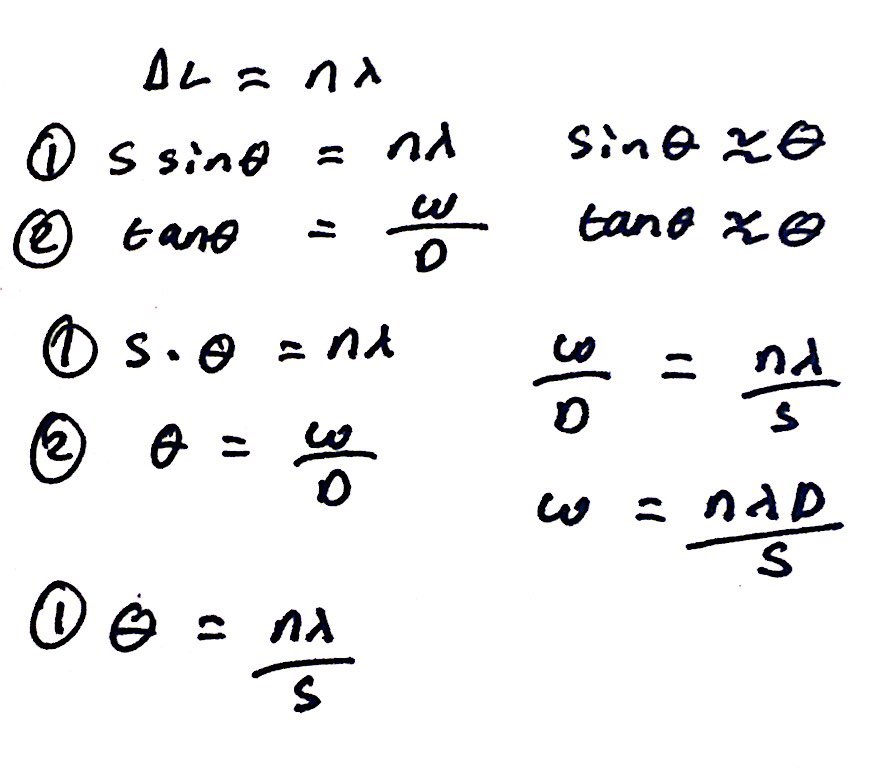 ΔL = nλ
① s sinθ = nλ sinθ ≈ θ
② tanθ = w/D tanθ ≈ θ
① s . θ = nλ w/D = nλ/s
② θ = w/D w = nλD/s
① θ = nλ/s